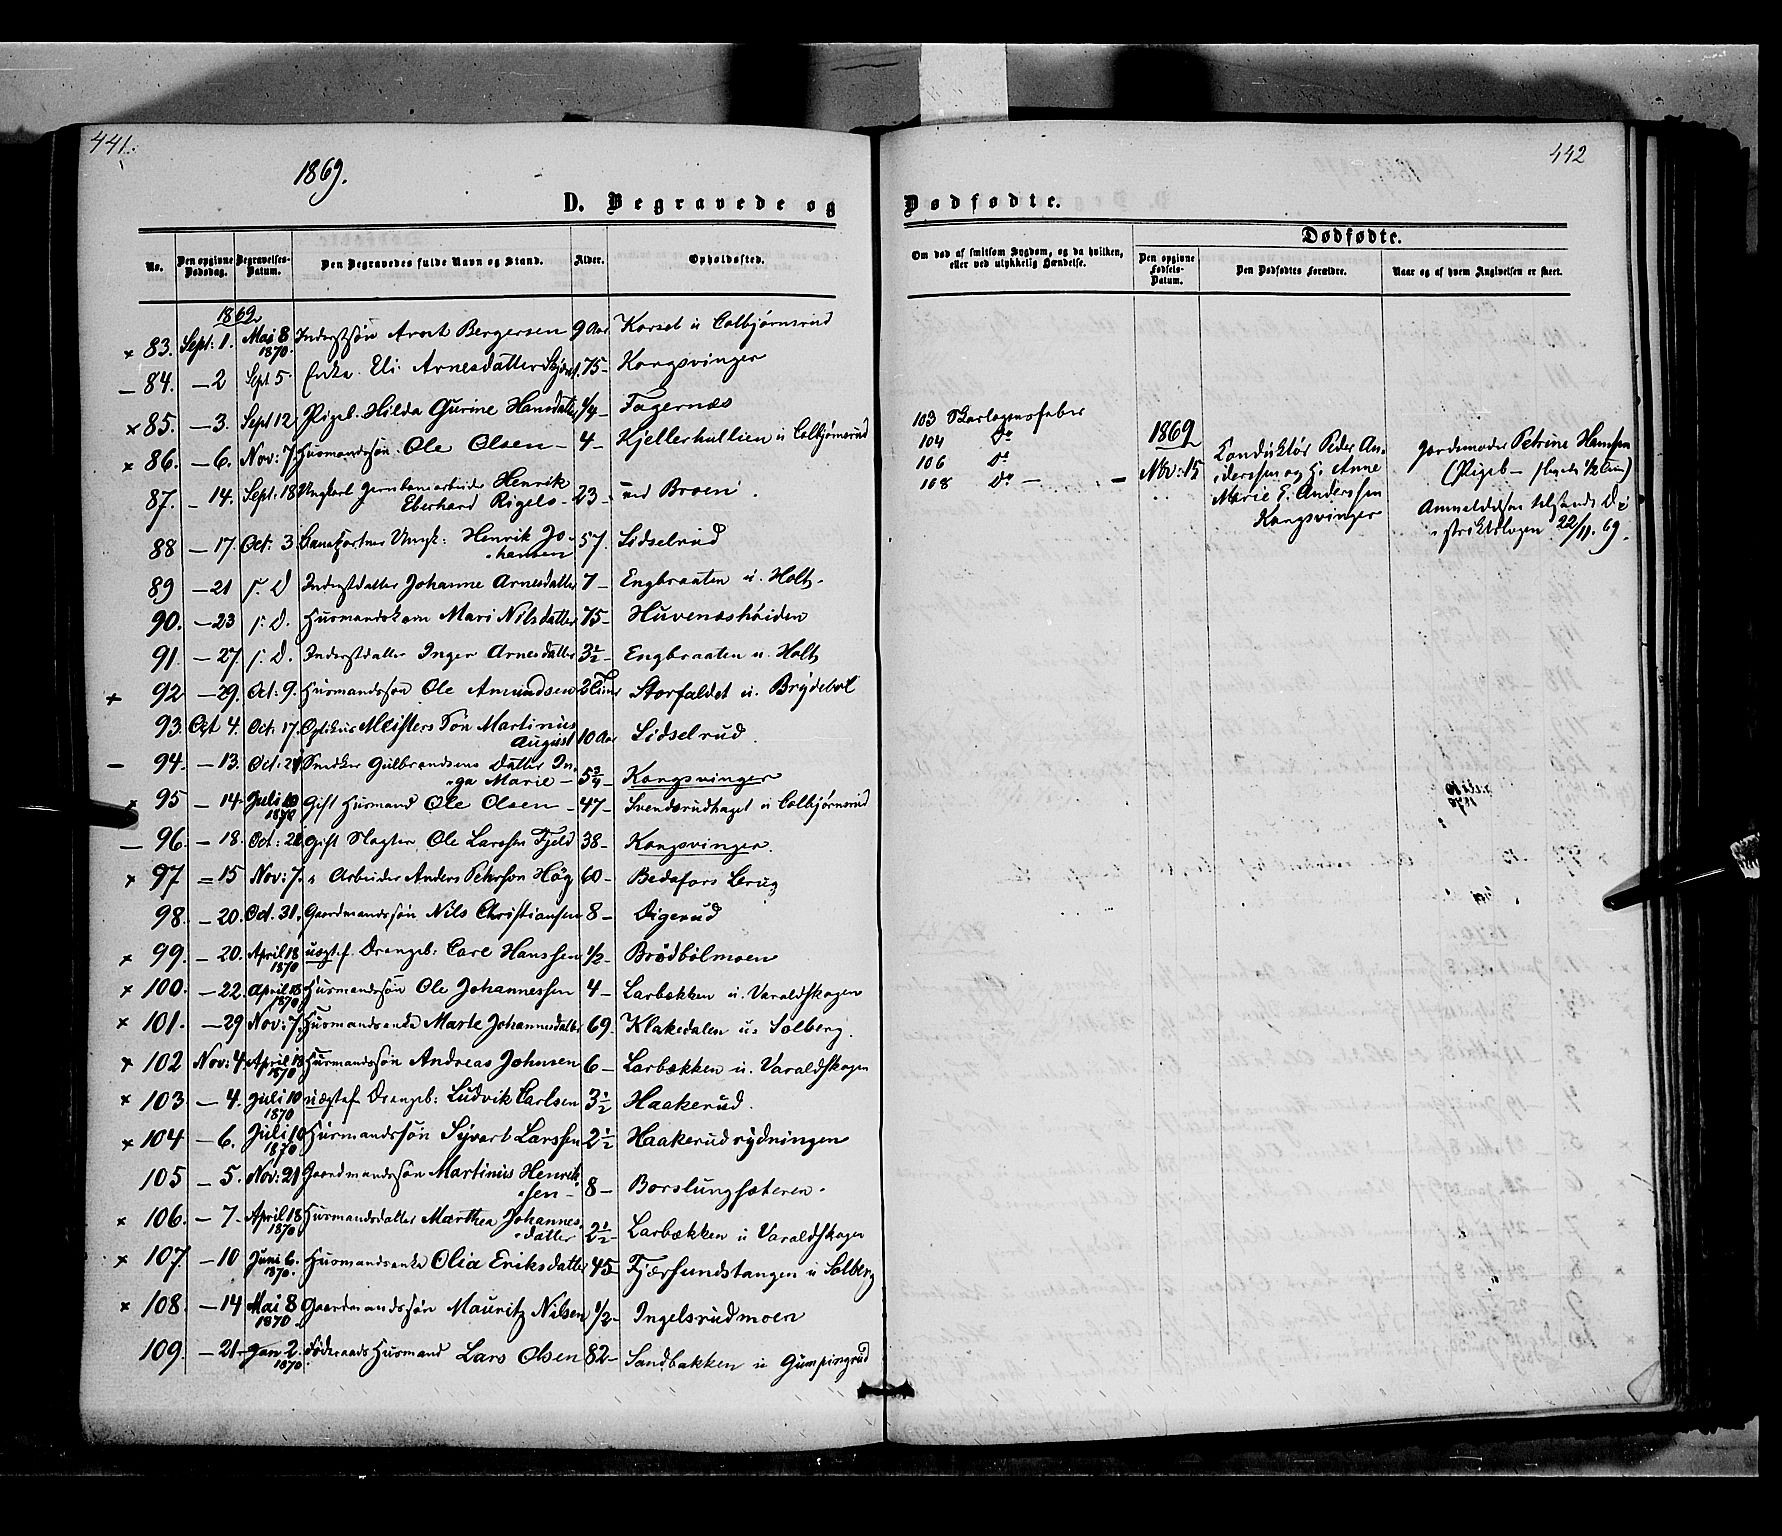 441.
1869.
D. Begravede og
No.
Den opgivne Dødsdag.
Begravelses-Datum.
Den Begravedes fulde Navn og Stand.
Alder.
Opholdssted.
1869
83. Sept: 1. Mai 8 1870. Inderstsøn Arnt Bergersen 9 Aar Korset u Colbjørnsrud
84. — 2 Sept 5. Enke Eli Arnesdatter 75 - Kongsvinger
85. — 3. Sept 12 Pigeb. Hilda Gurine Hansdatter 1/4 - Fagernæs
86. — 6. Nov: 7. Husmandssøn Ole Olsen — 4 - Kjellerhullien u Colbjørnsrud
87. — 14. Sept. 18 Ungkarl Jernbanearbeider Henrik
Eberhard Rigels - 23 - ved Broen.
88 — 17. Oct: 3. Ungk: Henrik Jo-
hansen 57. Lidselrud
89 — 21 s. D Inderstdatter Johanne Arnesdatter 7 - Engbraaten u. Holt.
90. — 23 s. D. Husmandskone Mari Nilsdatter 75 - Huvenæshøiden
91. — 27. s. D. Inderstdatter Inger Arnesdatter 3½ - Engbraaten u. Holt
+ 92 — 29. Oct: 9. Husmandssøn Ole Amundsen 2 Timer Storfaldet u. Brødebøl
93. Oct 4. Oct. 17. Optikus Meisters Søn Martinius
August 10 Aar Lidselrud.
— 94. — 13. Oct: 21 Snedker Gulbrandsens Datter In-
ga Marie — 5¾ - Kongsvinger
95 — 14. Juli 10 1870 Gift Husmand Ole Olsen — 47 - Svendsrudhaget u Colbjørnsrud
— 96. — 18. Oct: 24 gift Slagter Ole Larssen Fjeld 38 - Kongsvinger.
x 97 = 15 Nov: 7. Arbeider Anders Pehrson Hög 60 -
98. — 20. Oct. 31. Gaardmandssøn Nils Christiansen 8 - Digerud
x 99. — 20. April 18 1870 uægtef. Drengeb. Carl Hanssen 1/2 - Brødbølmoen
x 100. — 22. April 18 1870 Husmandssøn Ole Johannessen 4 - Larbækken u. Varaldskogen
x 101. — 29 Nov: 7. Husmandsenke Marte Johannesdatter 69. Klakedalen us Solberg.
x 102 Nov: 4. April 18 1870 Husmandssøn Andreas Johnsen 6 - Larbækken u. Varaldskogen
x 103 — 4. Juli 10 1870 uægtef. Drengeb: Ludvik Carlsen 3½ Haakerud.
x 104 — 6. Juli 10 1870 Husmandssøn Syvert Larssen 2½ Haakerudrydningen
105 — 5. Nov: 21 Gaardmandssøn Martinius Henrik-
sen — 8 - Borslungsæteren.
x 106. — 7 - April 18 1870 Husmandsdatter Marthea Johannes-
datter 2½ - Larbækken u Varaldskogen
x 107. — 10 Juni 6. 1870. Husmandsenke Olia Eriksdatter 45 - Fjærsundstangen u Solberg
x 108. — 14 Mai 8 1870 Gaardmandssøn Mauritz Nilsen 1/2 - Ingelsrudmoen
109. — 21 - Jan 2. 1870. Føderaads Husmand Lars Olsen 82 - Sandbakken u Gumpingrud
442
Dødfødte.
Om død af smitsom Sygdom, og da hvilken, eller ved ulykkelig Hændelse.
Dødfødte.
Den opgivne Fødsels-Datum.
Den Dødfødtes Forældre.
Naar og af hvem Angivelsen er skeet.
103 Skarlagensfeber
104 Do
106 Do
108 Do —
1869
— Nov: 15
Konduktør Peder An-
derssen og H. Anne
Marie E. Anderssen
Kongsvinger
Jordemoder Petrine Hansen
(Pigeb —
Anmeldelsen tilsendt Di-
striktslægen 22/11. 69.